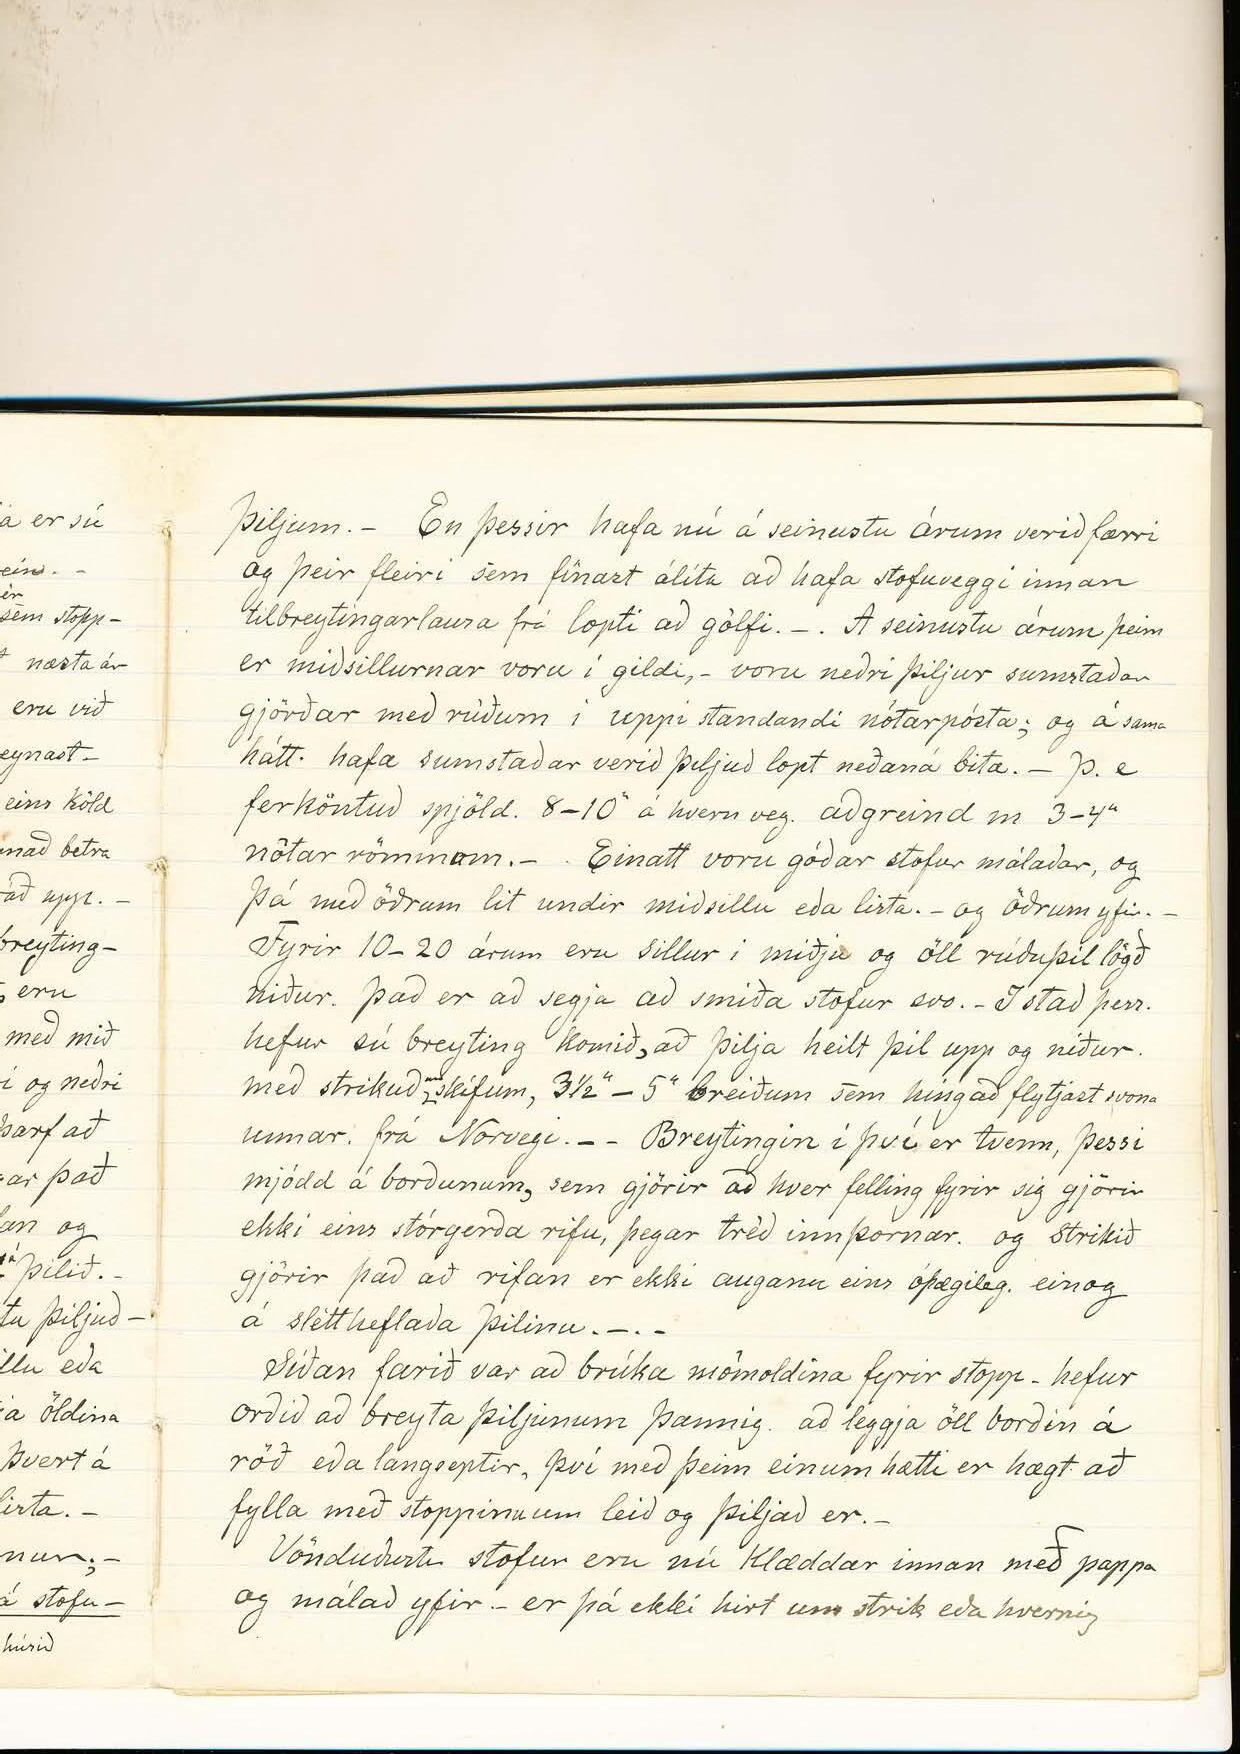 a er sú
ein. -
er
sem stopp-
næsta ár
eru við
egnast-
eins köld
nað betra
að upp. -
breyting-
eru
með mið
í og neðri
þarf að
ar það
an og
á þilið. -
tu þiljuð-
illu eða
a öldina
þvert á
lista. -
nur; -
á stofu-
húsið
þiljum. - En þessir hafa nú á seinustu árum verið færri
og þeir fleiri sem fínast álíta að hafa stofuveggi innan
tilbreytingarlausa frá lopti að gólfi. -. Á seinustu árum þeim
er miðsillurnar voru í gildi, - voru neðri þiljur sumstaðar
gjörðar með rúðum í uppi standandi nótarpósta; og á sama
hátt. hafa sumstaðar verið þiljuð lopt neðaná bita. - Þ. e
ferköntuð spjöld. 8-10" á hvern veg. aðgreind m 3-4"
nótar römmum. - Einatt voru góðar stofur málaðar, og
þá með öðrum lit undir miðsillu eða lista. - og öðrum yfir. -
Fyrir 10-20 árum eru sillur í miðju og öll rúðuþil lögð
niður. það er að segja að smíða stofur svo. - Í stað þess.
hefur sú breyting komið, að þilja heilt þil upp og niður.
með strikuðum skífum, 3½" - 5" breiðum sem hingað flytjast svona
unnar. frá Norvegi. - - Breytingin í því er tvenn, þessi
mjódd á borðunum, sem gjörir að hver felling fyrir sig gjörir
ekki eins stórgerða rifu, þegar tréð innþornar. og strikið
gjörir það að rifan er ekki auganu eins óþægileg. einog
á slétthefлаða þilinu. -. -
Síðan farið var að brúka mómoldina fyrir stopp - hefur
orðið að breyta þiljunum þannig. að leggja öll borðin á
röð eða langseptir, því með þeim einum hætti er hægt að
fylla með stoppinu um leið og þiljað er. -
Vönduðustu stofur eru nú klæddar innan með pappa
og málað yfir. - er þá ekki hirt um strik eða hvernig